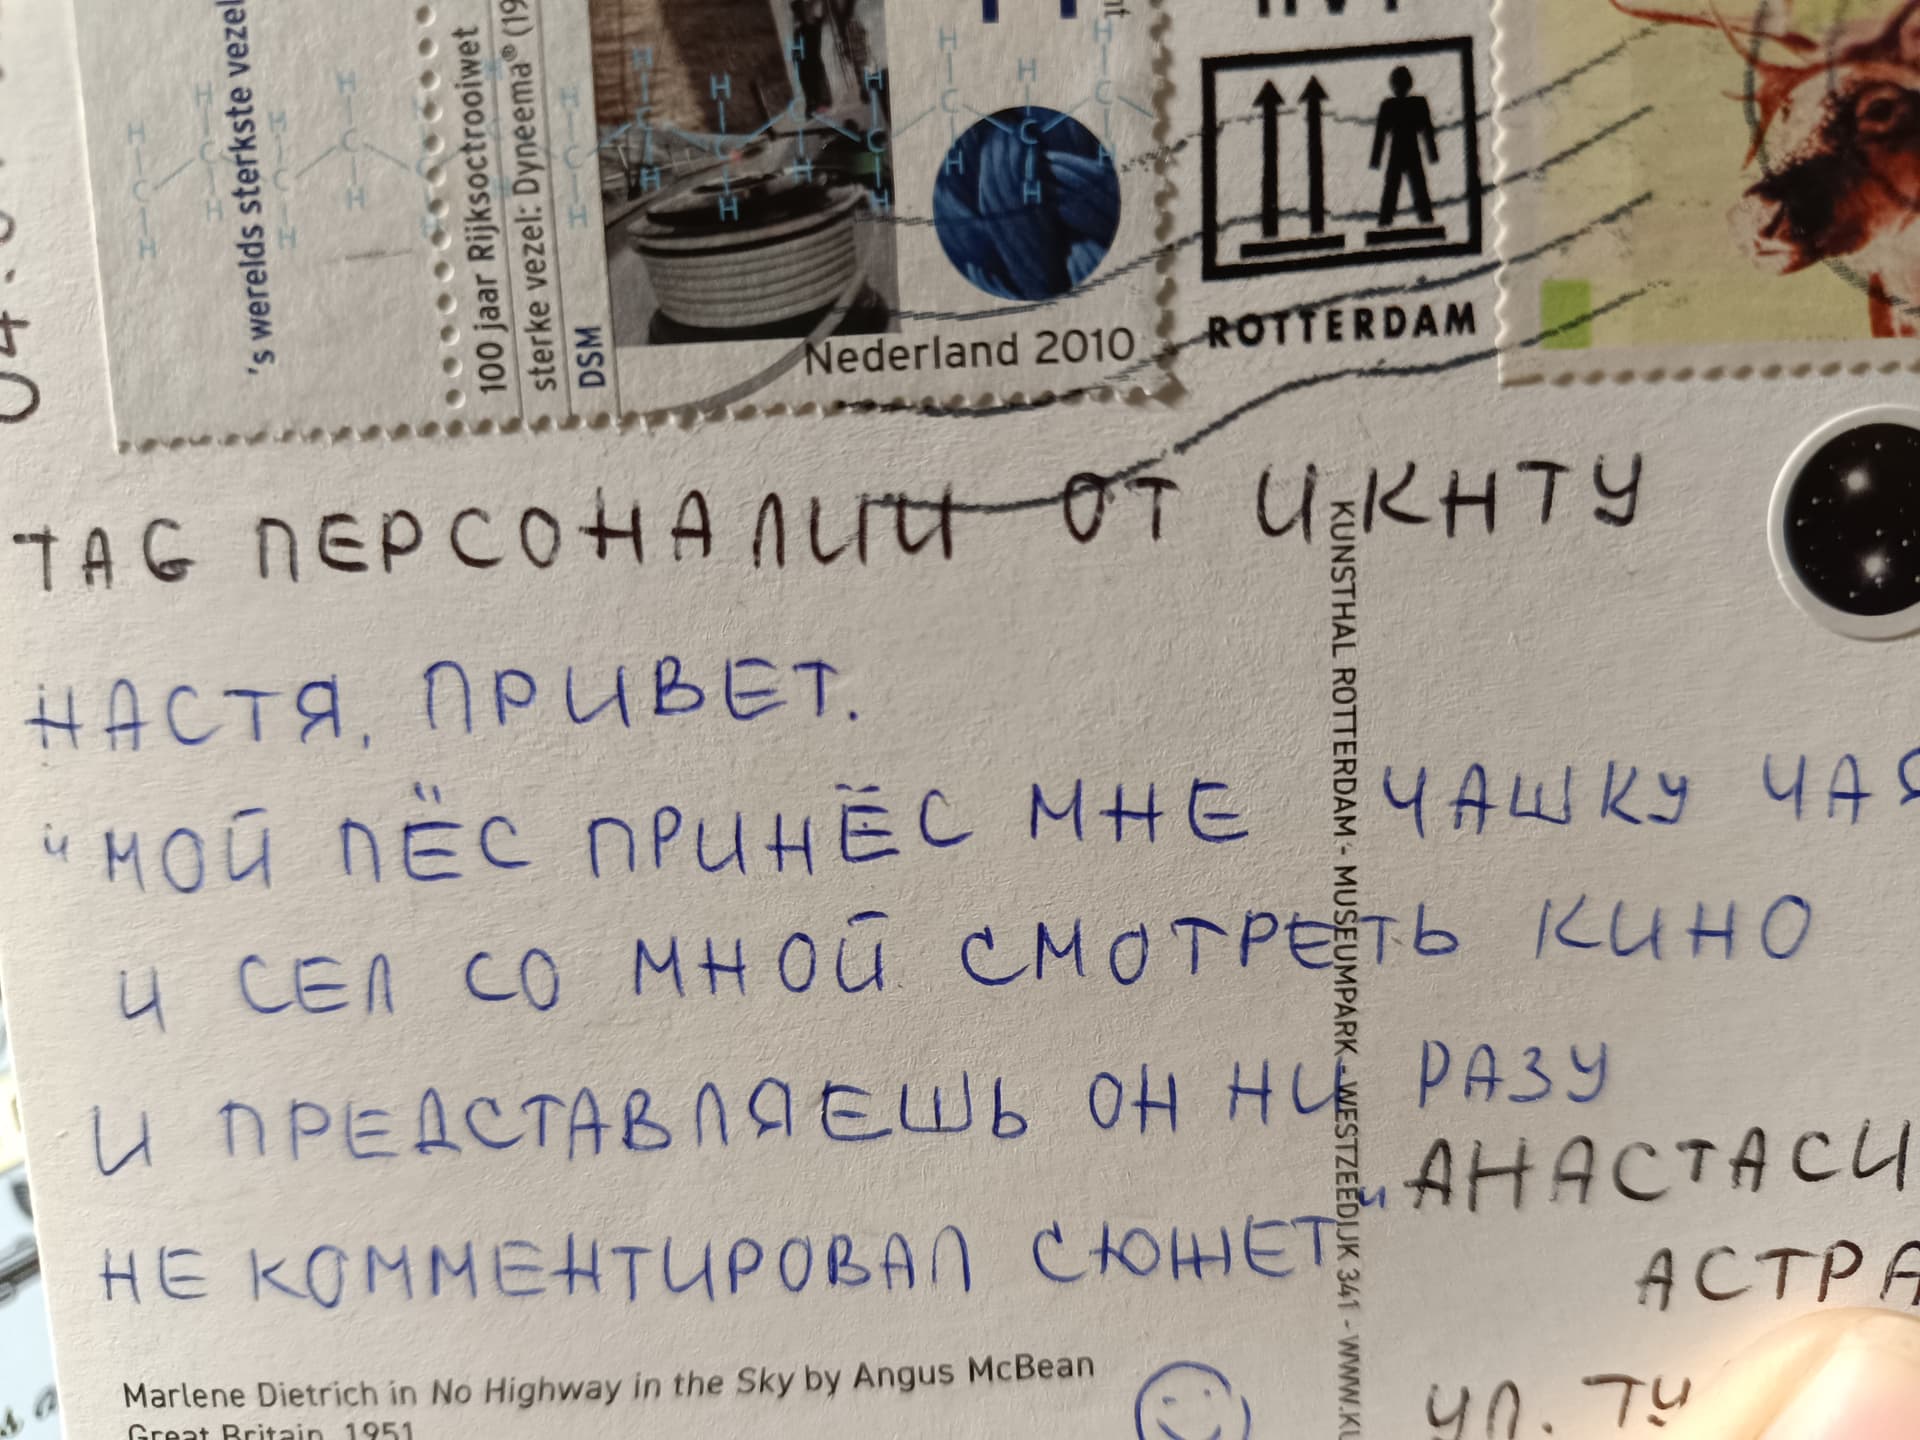 's werelds sterkste vezel
100 jaar Rijksoctrooiwet
sterke vezel: Dyneema® (19
DSM
Nederland 2010
ROTTERDAM
TAG ПЕРСОНАЛИИ ОТ ИКНТУ
НАСТЯ, ПРИВЕТ.
"МОЙ ПЁС ПРИНЁС МНЕ ЧАШКУ ЧАЯ
И СЕЛ СО МНОЙ СМОТРЕТЬ КИНО
И ПРЕДСТАВЛЯЕШЬ ОН НИ РАЗУ
НЕ КОММЕНТИРОВАЛ СЮЖЕТ"
Marlene Dietrich in No Highway in the Sky by Angus McBean
Great Britain, 1951
KUNSTHAL ROTTERDAM - MUSEUMPARK - WESTZEEDIJK 341 - WWW.KU
АНАСТАСИ
АСТРА
УЛ. ТУ